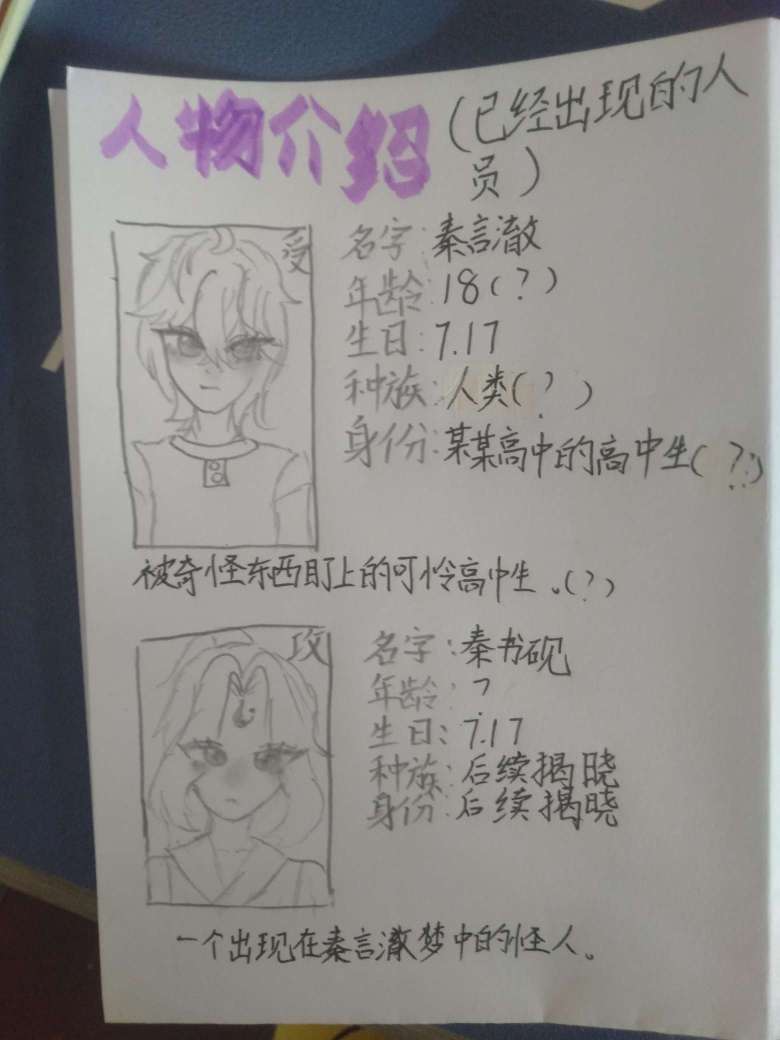 人物介绍(已经出现的人
员)
受
名字:秦言澈
年龄:18(?)
生日:7.17
种族:人类(?)
身份:某某高中的高中生(?)
被奇怪东西盯上的可怜高中生。(?)
攻
名字:秦书砚
年龄:?
生日:7.17
种族:后续揭晓
身份:后续揭晓
一个出现在秦言澈梦中的怪人。